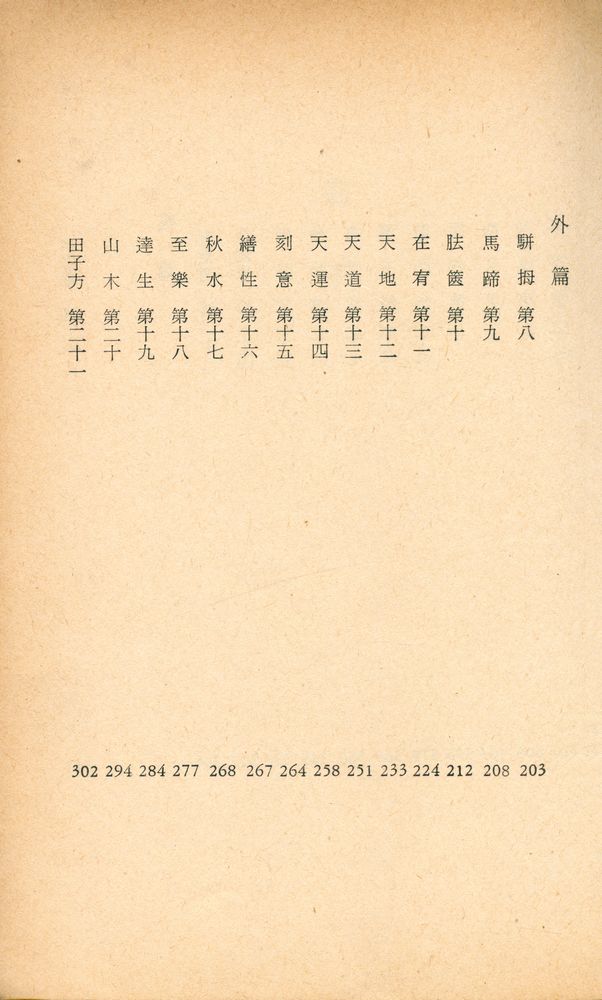 外篇
駢拇 第八 203
馬蹄 第九 208
胠篋 第十 212
在宥 第十一 224
天地 第十二 233
天道 第十三 251
天運 第十四 258
刻意 第十五 264
繕性 第十六 267
秋水 第十七 268
至樂 第十八 277
達生 第十九 284
山木 第二十 294
田子方 第二十一 302